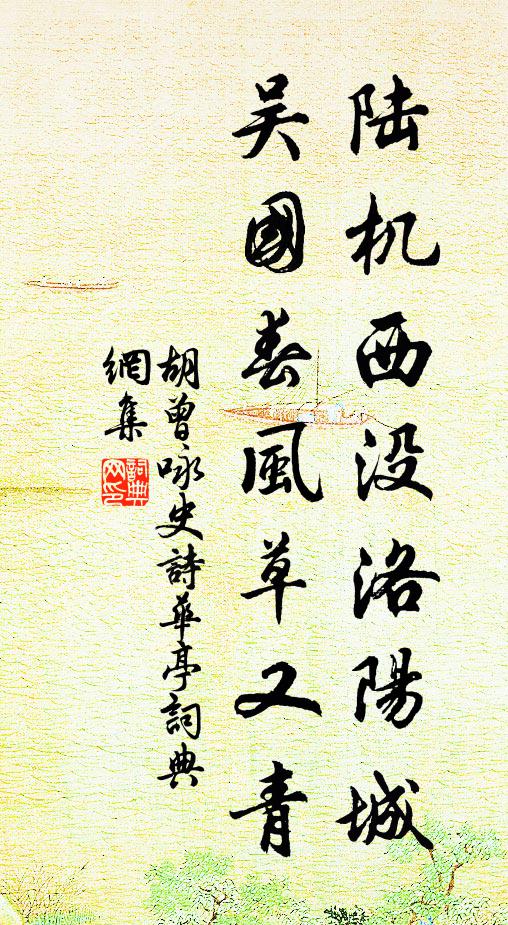 陆机西没洛陽城
吴國春風草又青
胡曾咏史詩華亭詞典
網集
詞典
网印